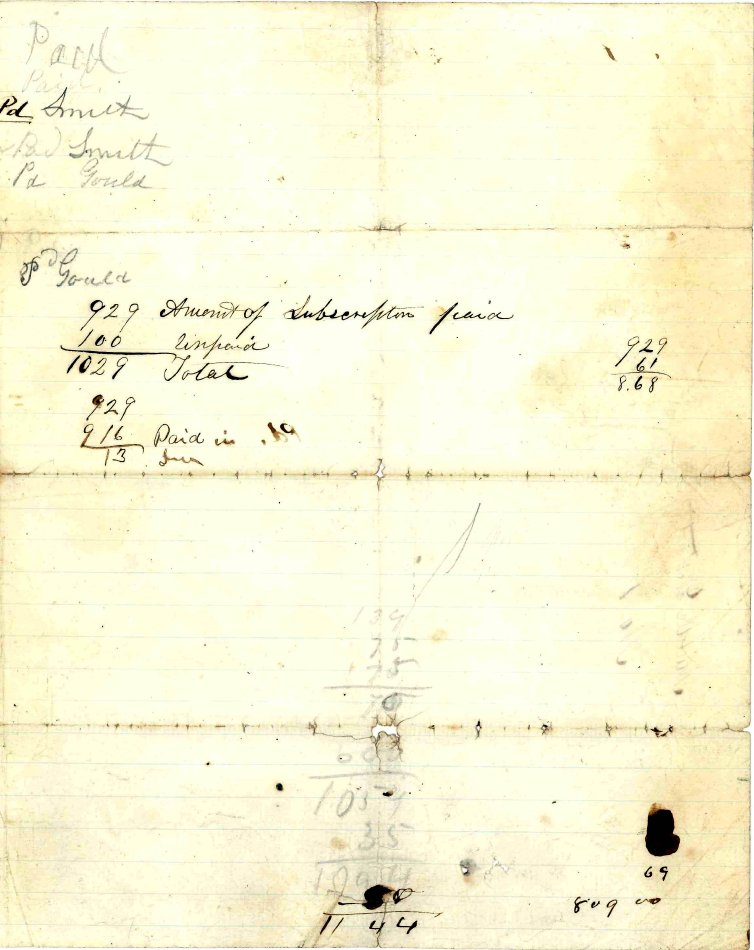 Paid
Paid
Pd Smith
Pad Smith
Pd Gould
Pd Gould
929 Amount of Subscription paid
100 Unpaid
1029 Total
929
61
8.68
929
916 Paid in
13
139
35
175
1054
35
1144
69
809 00